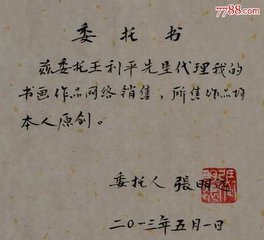 7788.com
委托书
兹委托王利平先生代理我的
书画作品网络销售，所售作品均
本人原创。
委托人 張明
二〇一三年五月一日